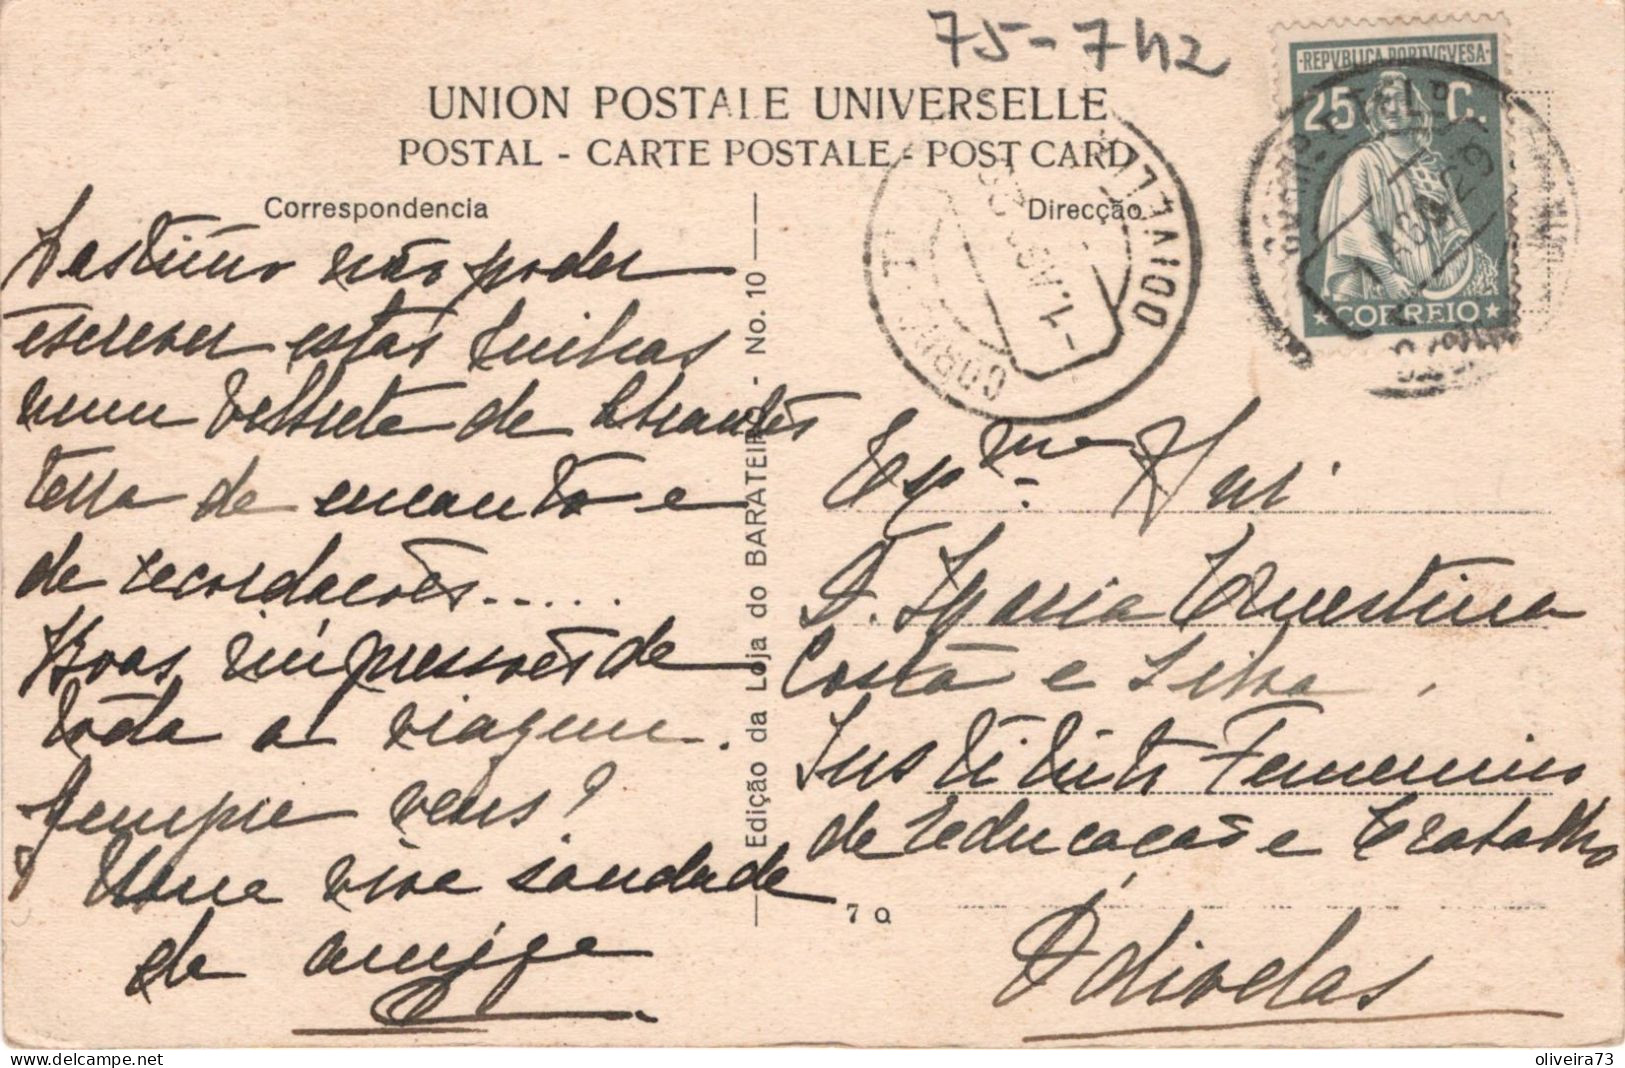 75-7h2
UNION POSTALE UNIVERSELLE
POSTAL - CARTE POSTALE - POST CARD
Correspondencia
Direcção
REPVBLICA PORTVGVESA
25 C.
CORREIO
1 AGO 29
ODIVELLAS
CORREIO
Lastimo não poder
escrever estas linhas
num de Abrantes
terra de encanto e
de recordações.....
Boas impressões de
toda a viagem.
Sempre vens?
Uma viva saudade
da amiga
Edição da Loja do BARATEIRO - No. 10
7 Q
Exma. Snr.
D. Maria Ernestina
Costa e Silva
Instituto Femenino
de Educação e Trabalho
Odivelas
delcampe.net
oliveira73